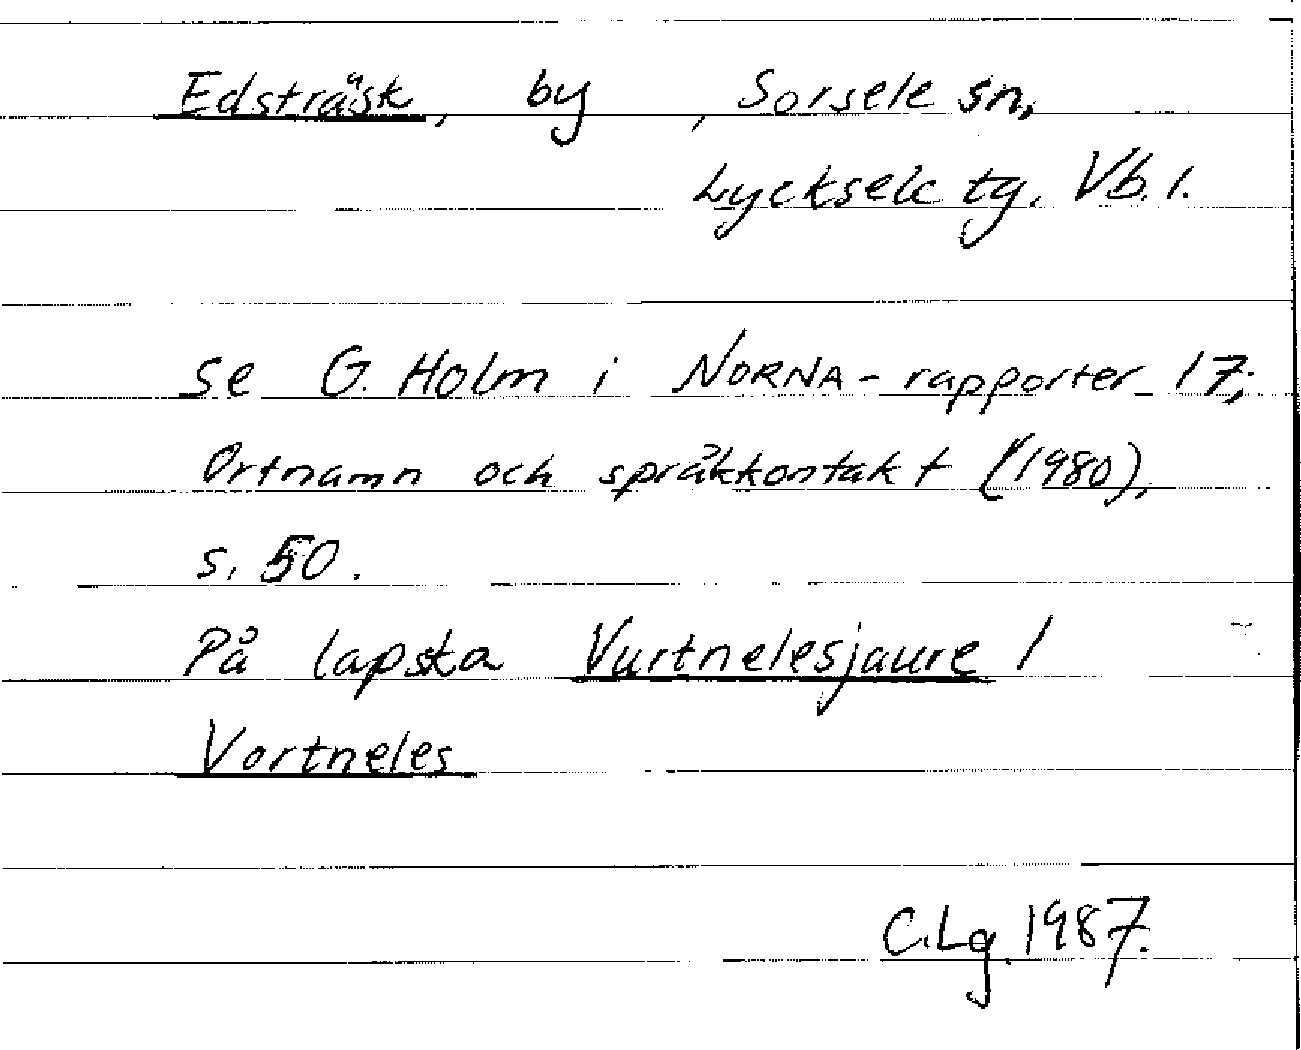 Edsträsk, by , Sorsele sn,
Lycksele tg. Vb. l.
se G. Holm i NORNA-rapporter 17;
Ortnamn och språkkontakt (1980),
s. 50.
På lapska Vurtnelesjaure /
Vortneles
C.Lg. 1987.